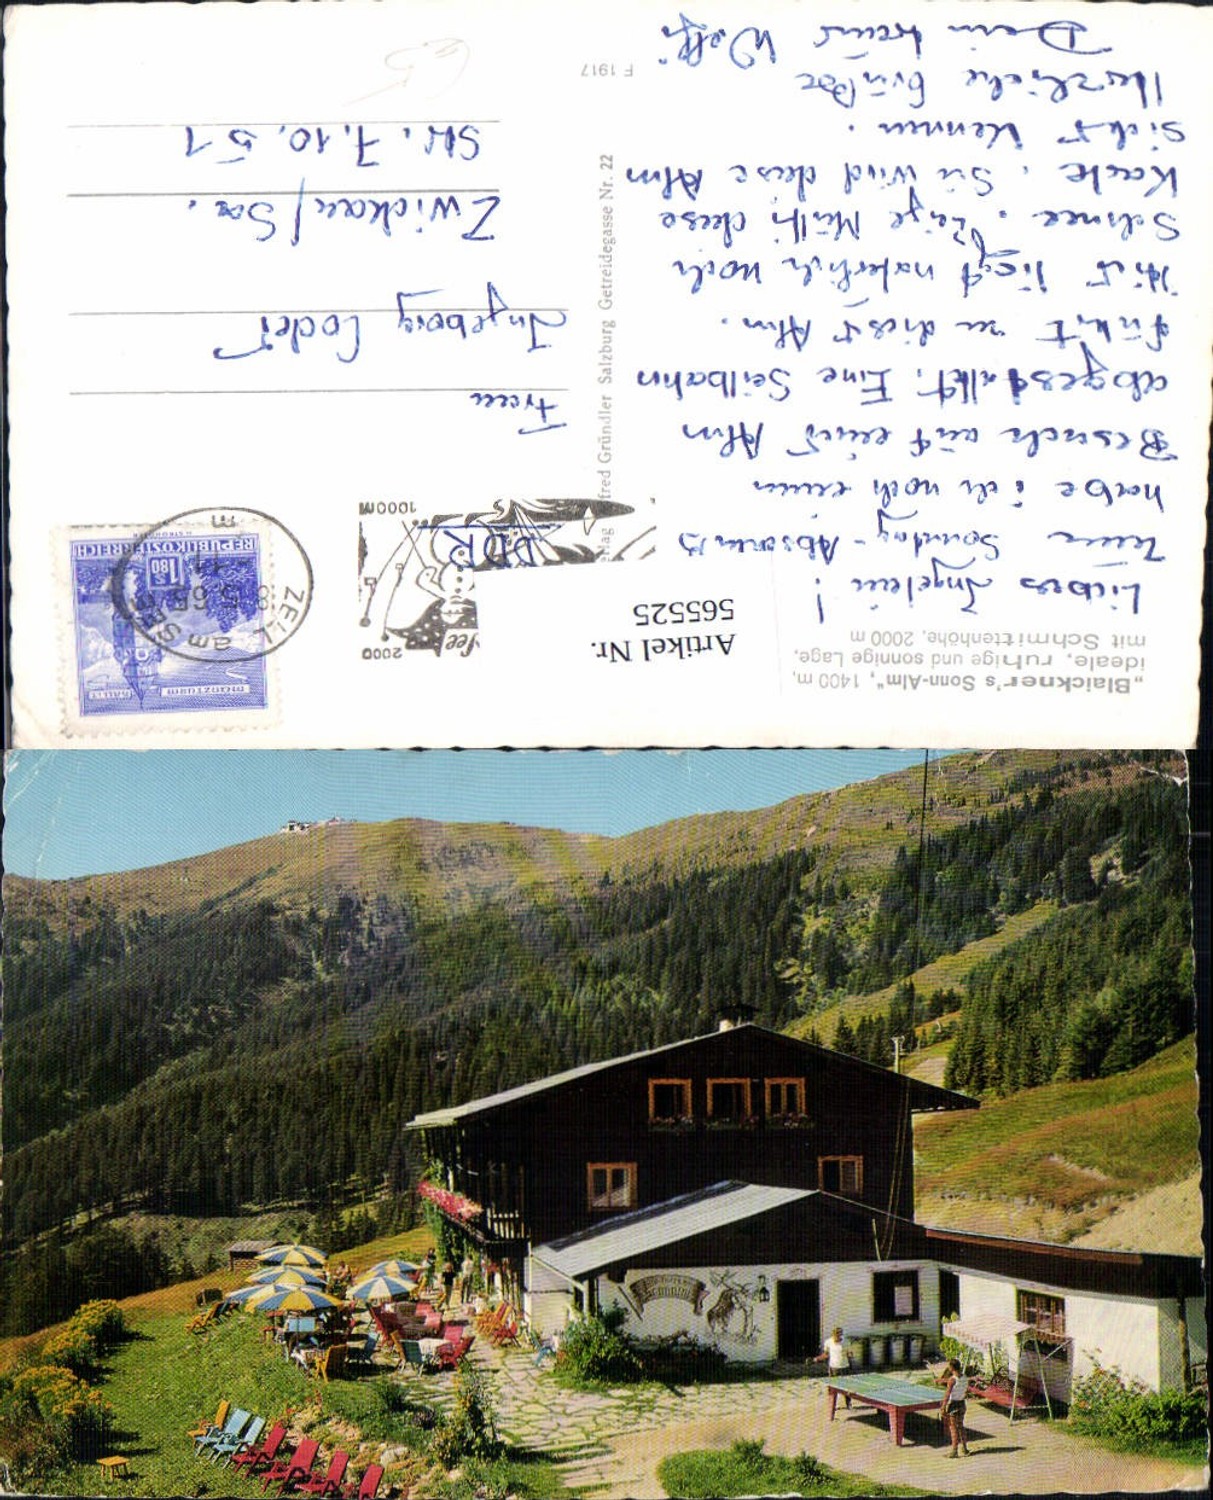 „Blaickner's Sonn-Alm", 1400 m,
ideale, ruhige und sonnige Lage,
mit Schmittenhöhe, 2000 m
Liebes Ingelein!
Zum Sonntag-Abschluß
habe ich noch einen
Besuch auf einer Alm
abgestattet. Eine Seilbahn
führt zu dieser Alm.
Hier liegt natürlich noch
Schnee. Zeige Mutti diese
Karte. Sie wird diese Alm
sicher kennen.
Herzliche Grüße
Dein Wolf.
Artikel Nr.
565525
fred Gründler Salzburg Getreidegasse Nr. 22
F 1917
2000
1000 M
See
DDR
ZELL am SEE
8.5.65
REPUBLIK ÖSTERREICH
S 1.80
Münzturm
HALL i T
Frau
Ingeborg Loder
Zwickau/Sa.
Str. 7.10.51